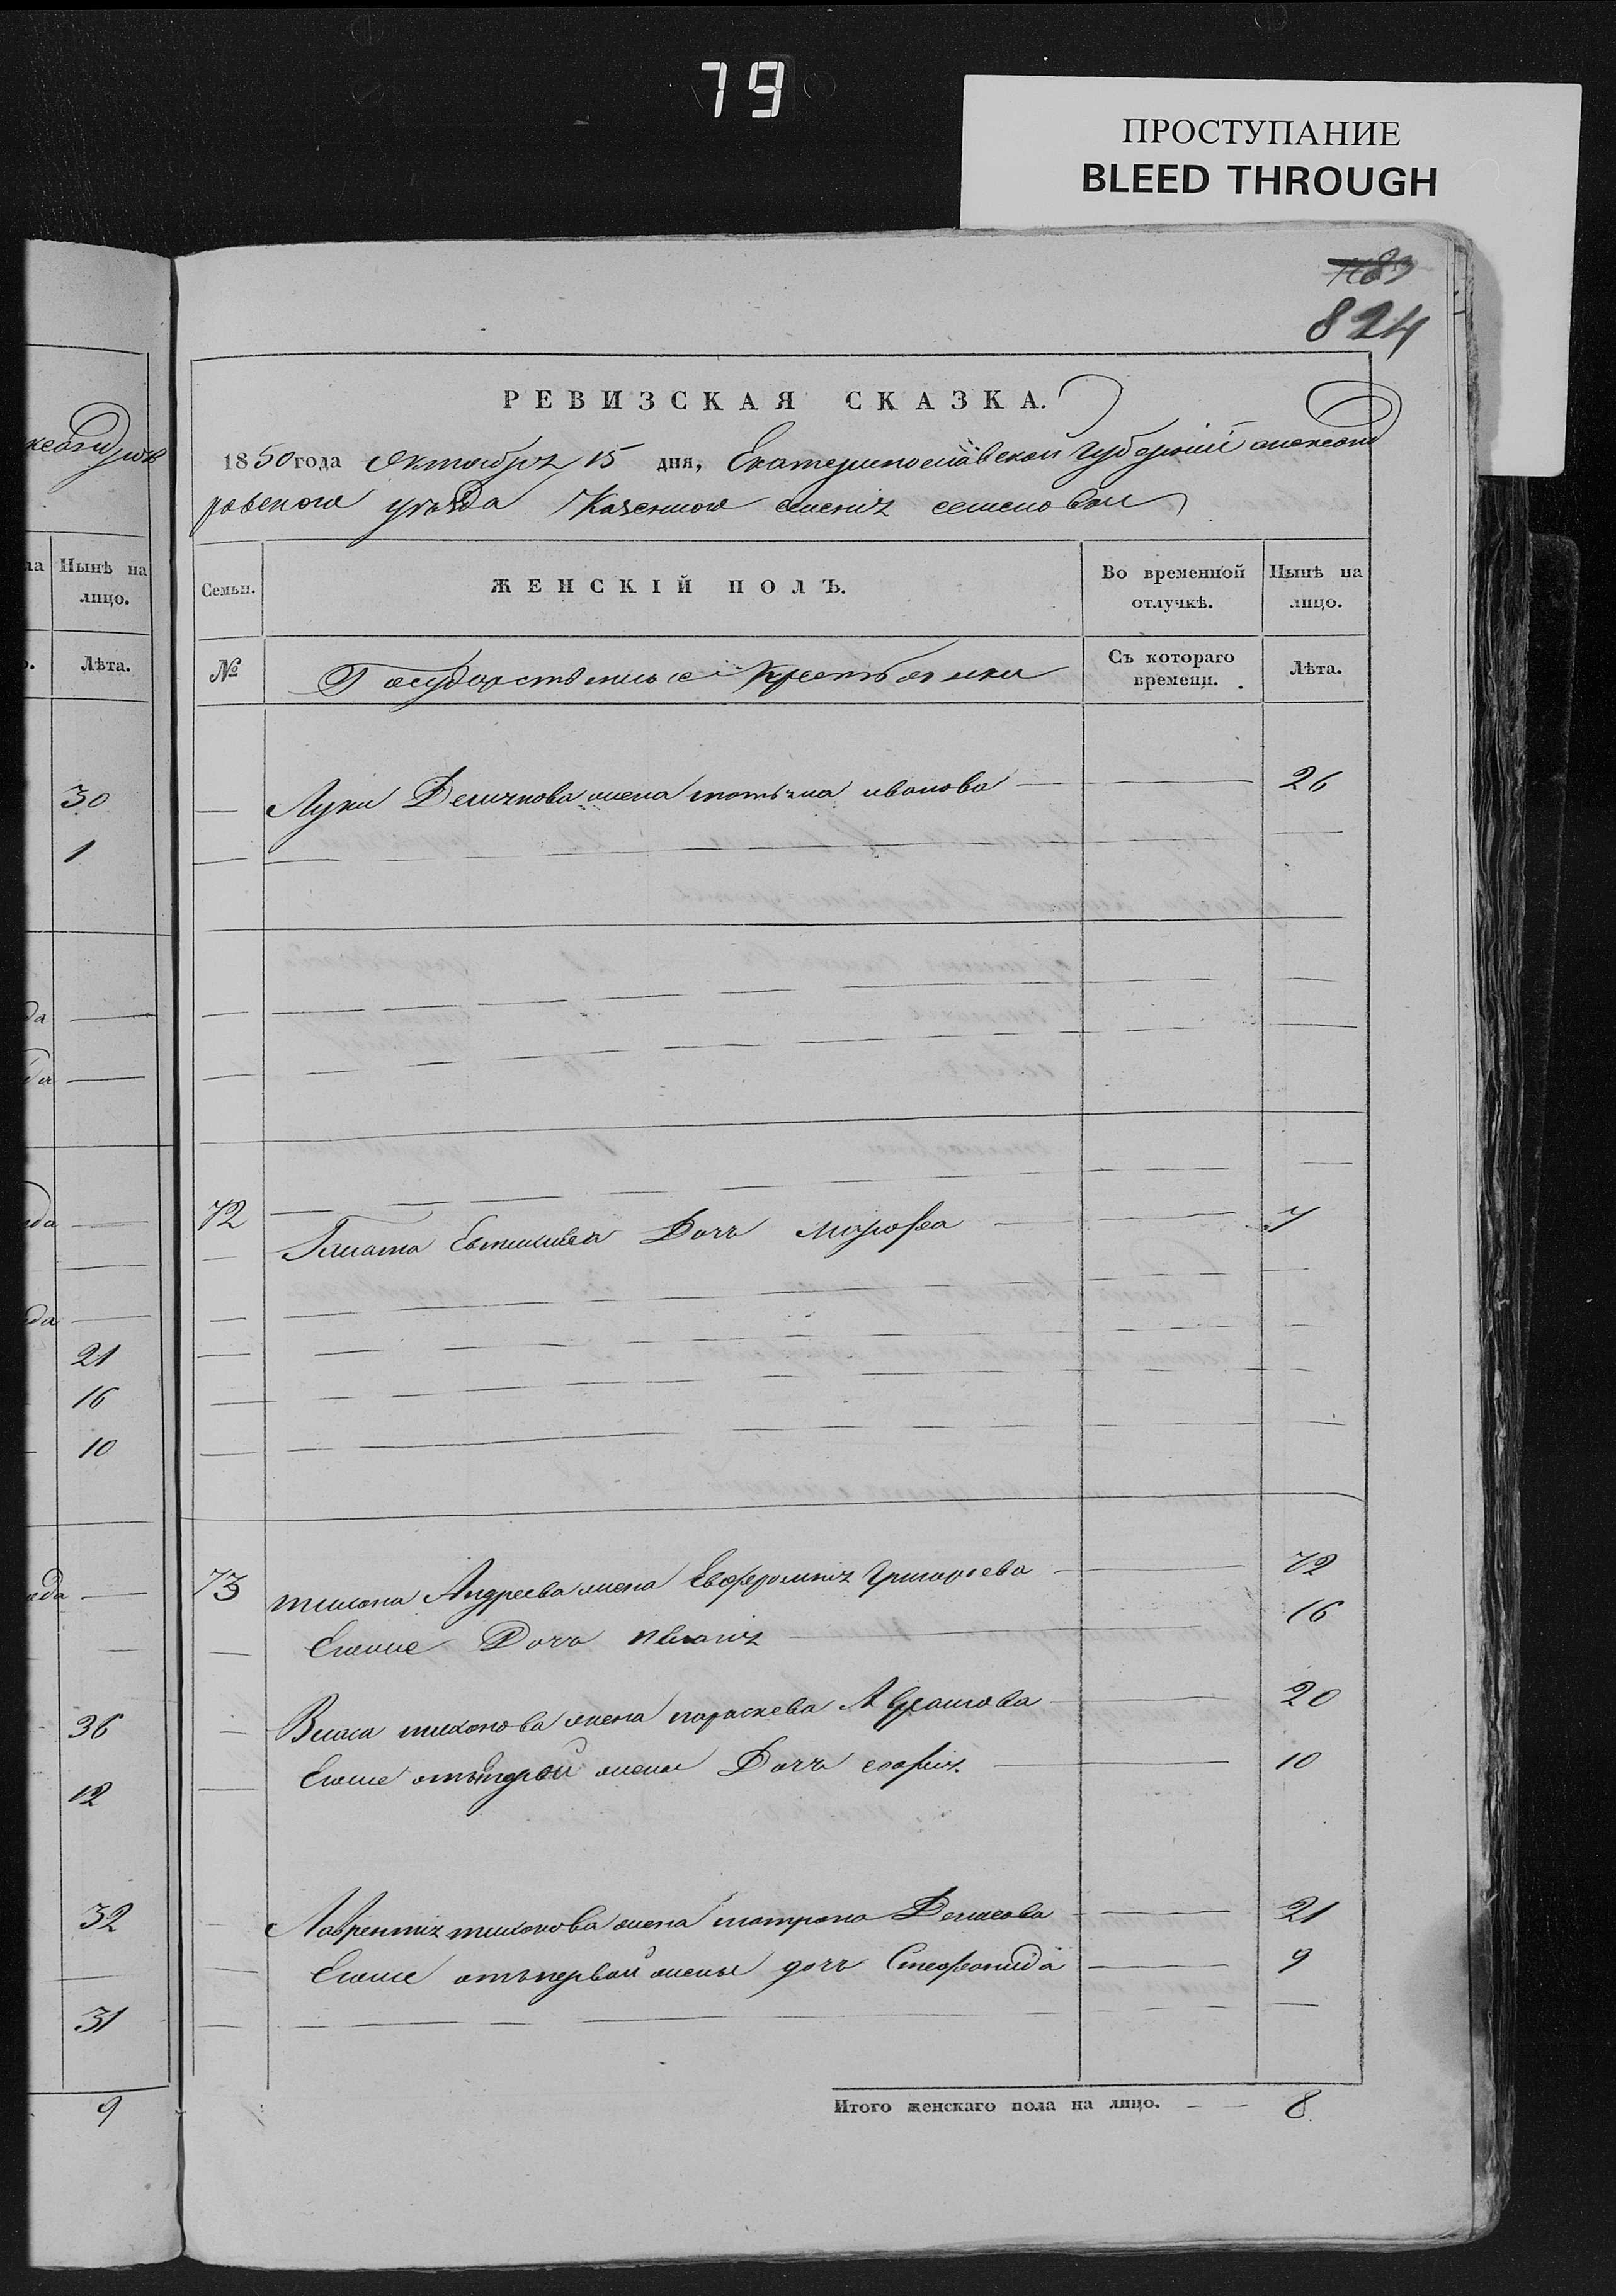 79
ПРОСТУПАНИЕ
BLEED THROUGH
824
РЕВИЗСКАЯ СКАЗКА.
1850 года Октября 15 дня, Екатеринославской Губернии Александ
ровского уезда Казенного селения семеновки
Семьи.
ЖЕНСКІЙ ПОЛЪ.
Во временной отлучкѣ.
Нынѣ на лицо.
№
Государственные крестьянки
Съ котораго времени.
Лѣта.
Луки Демьянова жена татьяна иванова 26
72
дочь марфа 7
73 тихона Андреева жена Евфросиния Григорьева 72
Егоже Дочь 16
тихонова жена параскева Абрамова 20
Егоже жены Дочь софия 10
Лаврентия тихонова жена матрона Денисова 21
Егоже отъ первой жены дочь Степанида 9
Итого женскаго пола на лицо. 8
Нынѣ на лицо.
Лѣта.
30
1
21
16
10
36
12
32
31
9